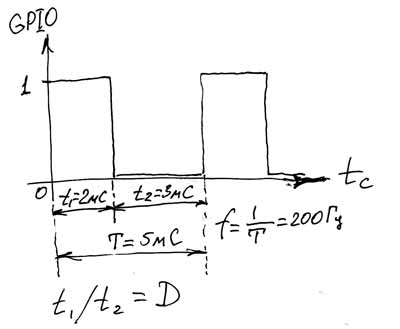 GPIO
1
0
t₁=2мС t₂=3мС
tс
T=5мС
f=1/T=200Гц
t₁/t₂=D